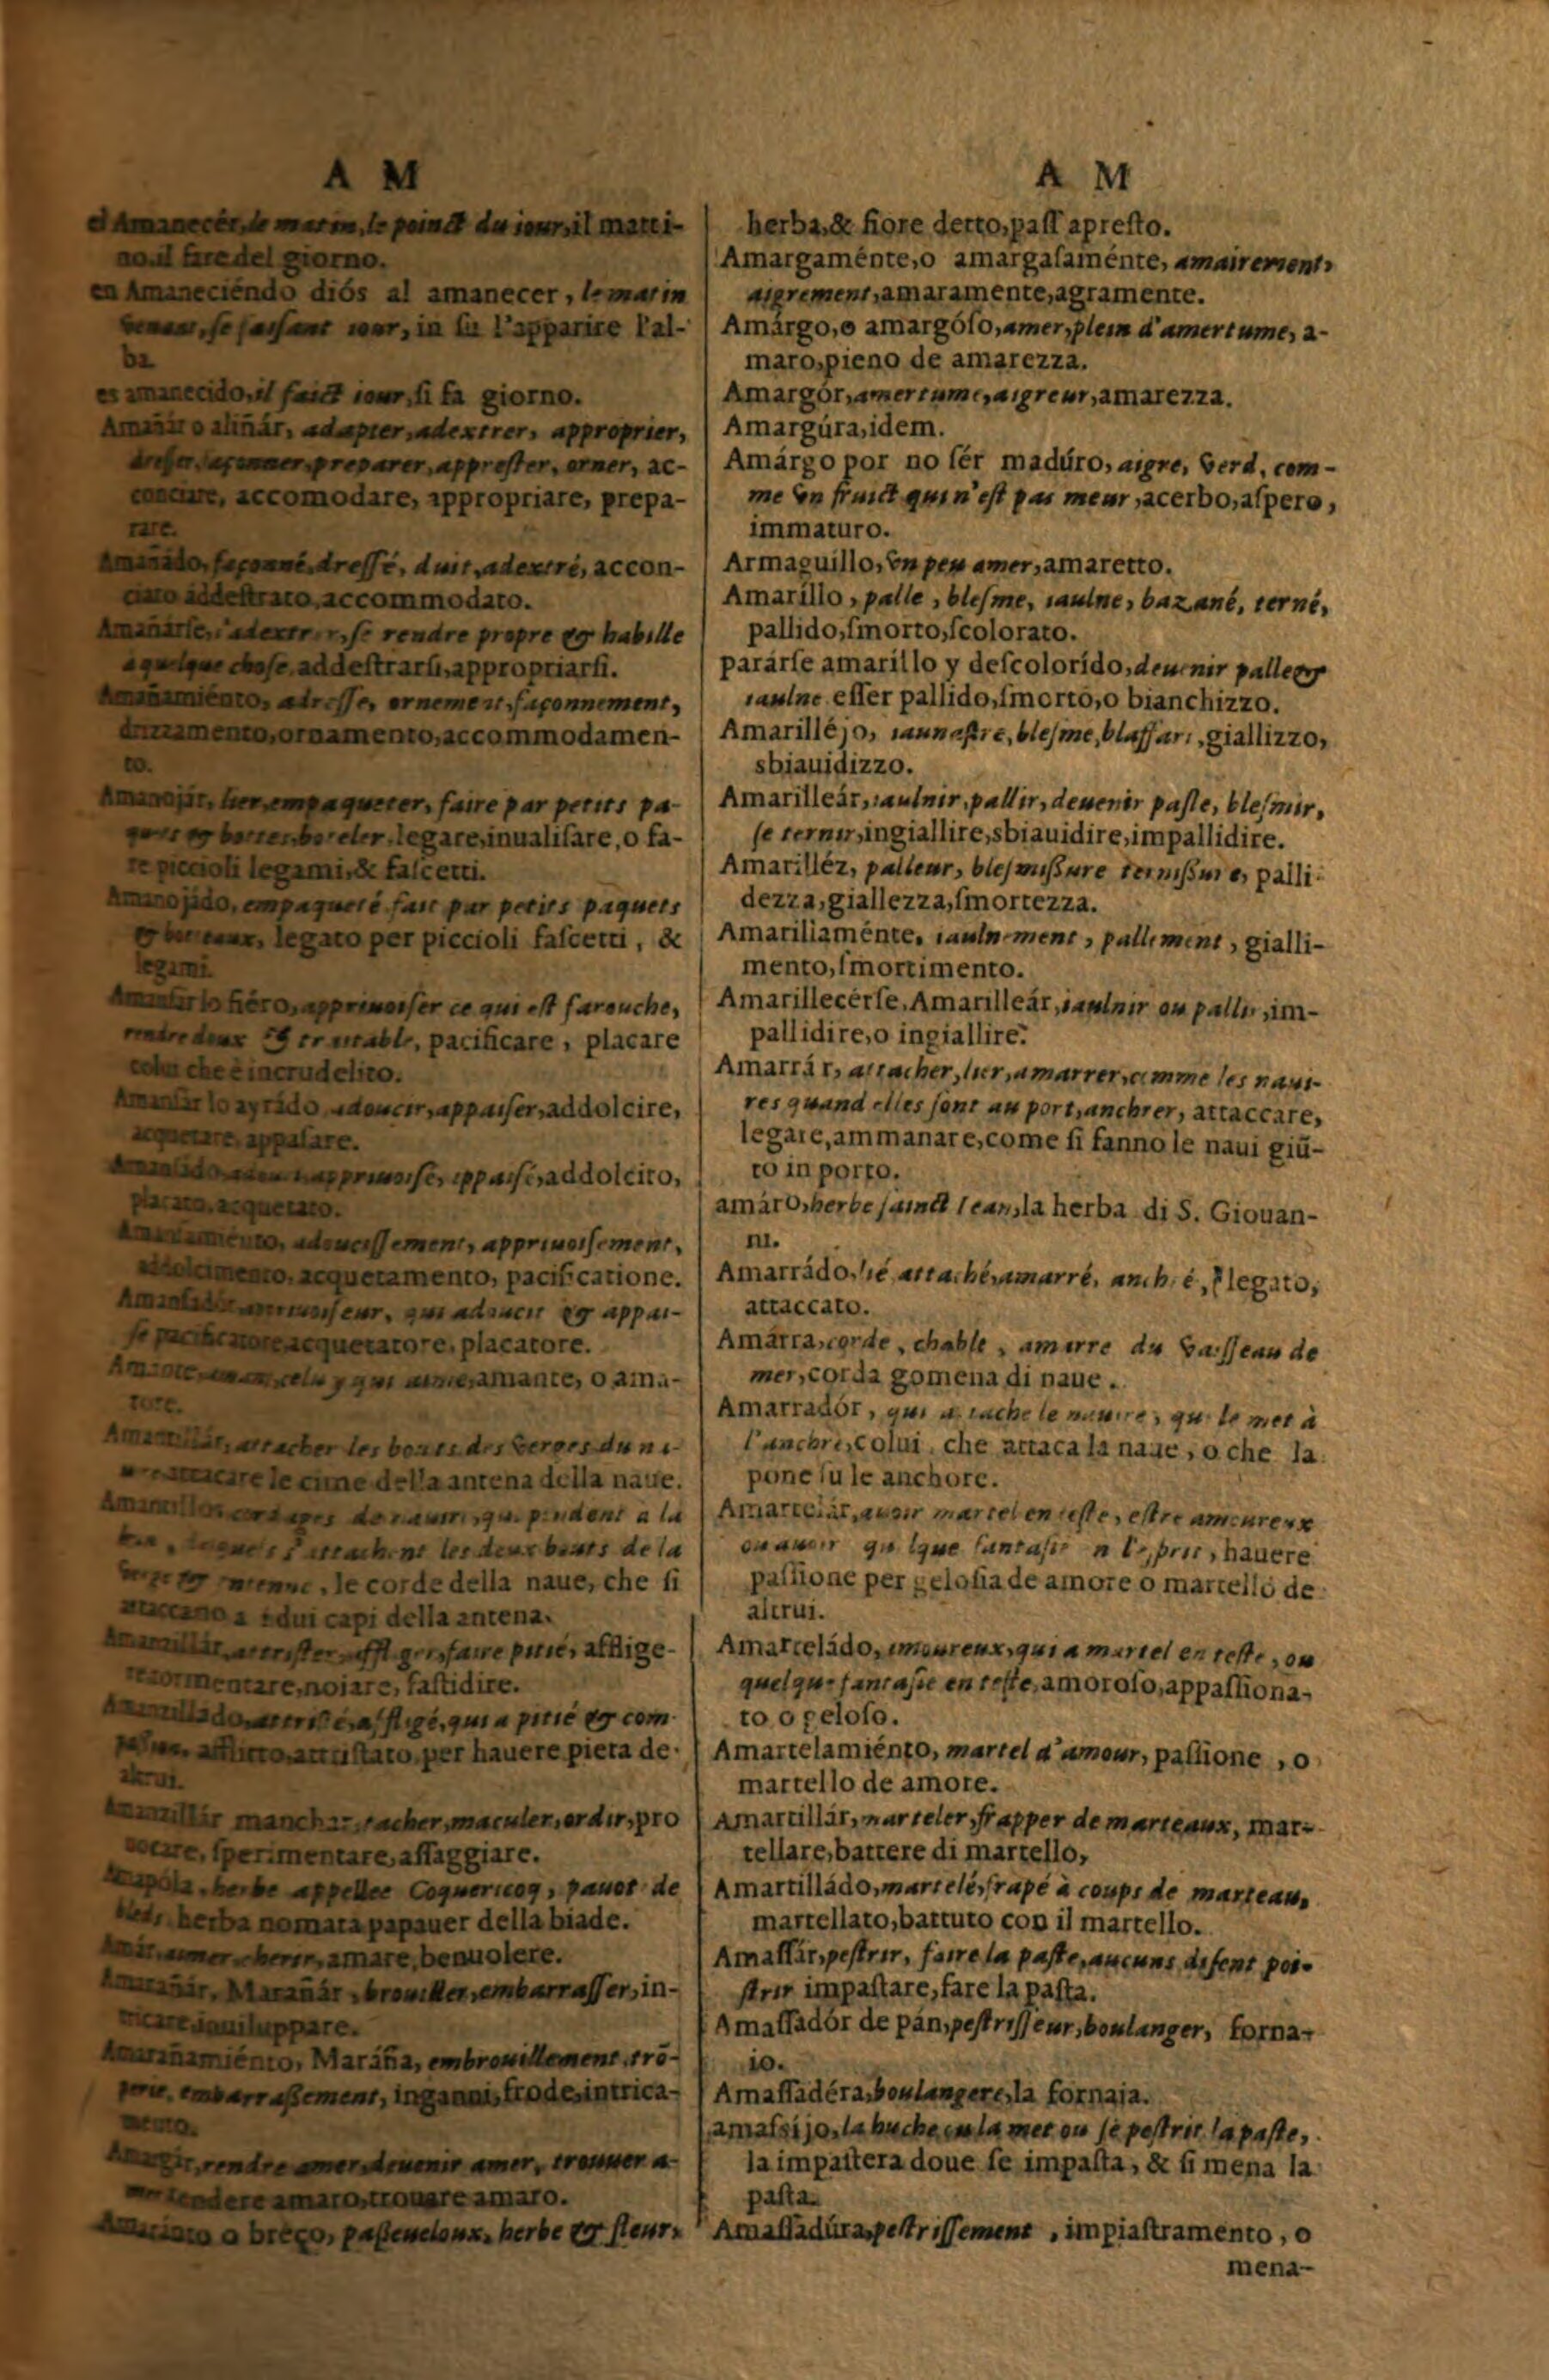 A M
el Amanecér, le matin, le poinct du iour, il matti-
no. il fare del giorno.
en Amaneciéndo diós al amanecer, le matin
venant, se faisant iour, in sù l'apparire l'al-
ba
es amanecido, il faict iour, si fa giorno.
Amañár o aliñár, adapter, adextrer, approprier,
dresser, façonner, preparer, apprester, orner, ac-
conciare, accomodare, appropriare, prepa-
rare.
Amañádo, façonné, dressé, duit, adextré, accon-
ciato addestrato, accommodato.
Amañárse, s'adextrer, se rendre propre & habille
à quelque chose, addestrarsi, appropriarsi.
Amañamiénto, adresse, ornement, façonnement,
drizzamento, ornamento, accommodamen-
to.
Amanojár, lier, empaqueter, faire par petits pa-
quets & bottes, boteler, legare, inualisare, o fa-
re piccioli legami, & fascetti.
Amanojádo, empaqueté fait par petits paquets
& botteaux, legato per piccioli fascetti, &
legami.
Amansár lo fiéro, appriuoiser ce qui est farouche,
rendre doux & traitable, pacificare, placare
colui che è incrudelito.
Amansár lo ayrádo adoucir, appaiser, addolcire,
acquetare, appasare.
Amansádo, appriuoisé, appaisé, addolcito,
placato, acquetato.
Amansamiénto, adoucissement, appriuoisement,
addolcimento, acquetamento, pacificatione.
Amansadór appriuoiseur, qui adoucit & appai-
se pacificatore, acquetatore, placatore.
Amante, amant, celuy qui aime, amante, o ama-
tore.
Amantillár, attacher les bouts des verges du na-
uire attacare le cime della antena della naue.
Amantillos cordages de nauire, qui pendent à la
s'attachent les deux bouts de la
verge & antenne, le corde della naue, che si
attaccano a i dui capi della antena.
Amanzillár, attrister, affliger, faire pitié, afflige-
re tormentare, noiare, fastidire.
Amanzilládo, attristé, affligé, qui a pitié & com-
passion, afflitto, attristato, per hauere pieta de
altrui.
Amanzillár manchar, tacher, maculer, ordir, pro
uocare, sperimentare, assaggiare.
Amapóla, herbe appellee Coquericoq, pauot de
bleds, herba nomata papauer della biade.
Amár, aimer, cherir, amare, benuolere.
Amarañár, Marañár, brouiller, embarrasser, in-
tricare, inuiluppare.
Amarañamiénto, Maráña, embrouillement, trõ-
perie, embarrassement, inganni, frode, intrica-
mento.
Amargár, rendre amer, deuenir amer, trouuer a-
mer rendere amaro, trouare amaro.
o breço, passeueloux, herbe & fleur,
A M
herba, & fiore detto, pass'apresto.
Amargaménte, o amargasaménte, amairement,
aigrement, amaramente, agramente.
Amárgo, o amargóso, amer, plein d'amertume, a-
maro, pieno de amarezza.
Amargór, amertume, aigreur, amarezza.
Amargúra, idem.
Amárgo por no sér madúro, aigre, verd, com-
me vn fruict qui n'est pas meur, acerbo, aspero,
immaturo.
Armaguillo, vn peu amer, amaretto.
Amaríllo, palle, blesme, iaulne, bazané, terné,
pallido, smorto, scolorato.
parárse amarillo y descolorído, deuenir palle &
iaulne esser pallido, smorto, o bianchizzo.
Amarilléjo, iaunastre, blesme, blaffart, giallizzo,
sbiauidizzo.
Amarilleár, iaulnir, pallir, deuenir pasle, blesmir,
se ternir, ingiallire, sbiauidire, impallidire.
Amarilléz, palleur, blesmissure ternissure, palli-
dezza, giallezza, smortezza.
Amarillaménte, iaulnement, pallement, gialli-
mento, smortimento.
Amarillecérse, Amarilleár, iaulnir ou pallir, im-
pallidire, o ingiallire.
Amarrár, attacher, lier, amarrer, comme les naui-
res quand elles sont au port, anchrer, attaccare,
legare, ammanare, come si fanno le naui giũ-
to in porto.
amáro, herbe sainct Iean, la herba di S. Giouan-
ni.
Amarrádo, lié attaché, amarré, anchré, legato,
attaccato.
Amárra, corde, chable, amarre du vaisseau de
mer, corda gomena di naue.
Amarradór, qui attache le nauire, qui le met à
l'anchre, colui che attaca la naue, o che la
pone su le anchore.
Amartelár, auoir martel en teste, estre amoureux
ou auoir quelque fantasie en l'esprit, hauere
passione per gelosia de amore o martello de
altrui.
Amarteládo, amoureux, qui a martel en teste, ou
quelque fantasie en teste, amoroso, appassiona-
to o geloso.
Amartelamiénto, martel d'amour, passione, o
martello de amore.
Amartillár, marteler, frapper de marteaux, mar-
tellare, battere di martello,
Amartilládo, martelé, frapé à coups de marteau,
martellato, battuto con il martello.
Amassár, pestrir, faire la paste, aucuns disent poi-
strir impastare, fare la pasta.
Amassadór de pán, pestrisseur, boulanger, forna-
io.
Amassadéra, boulangere, la fornaia.
amassijo, la huche ou la met ou se pestrit la paste,
la impastera doue se impasta, & si mena la
pasta.
Amassadúra, pestrissement, impiastramento, o
mena-